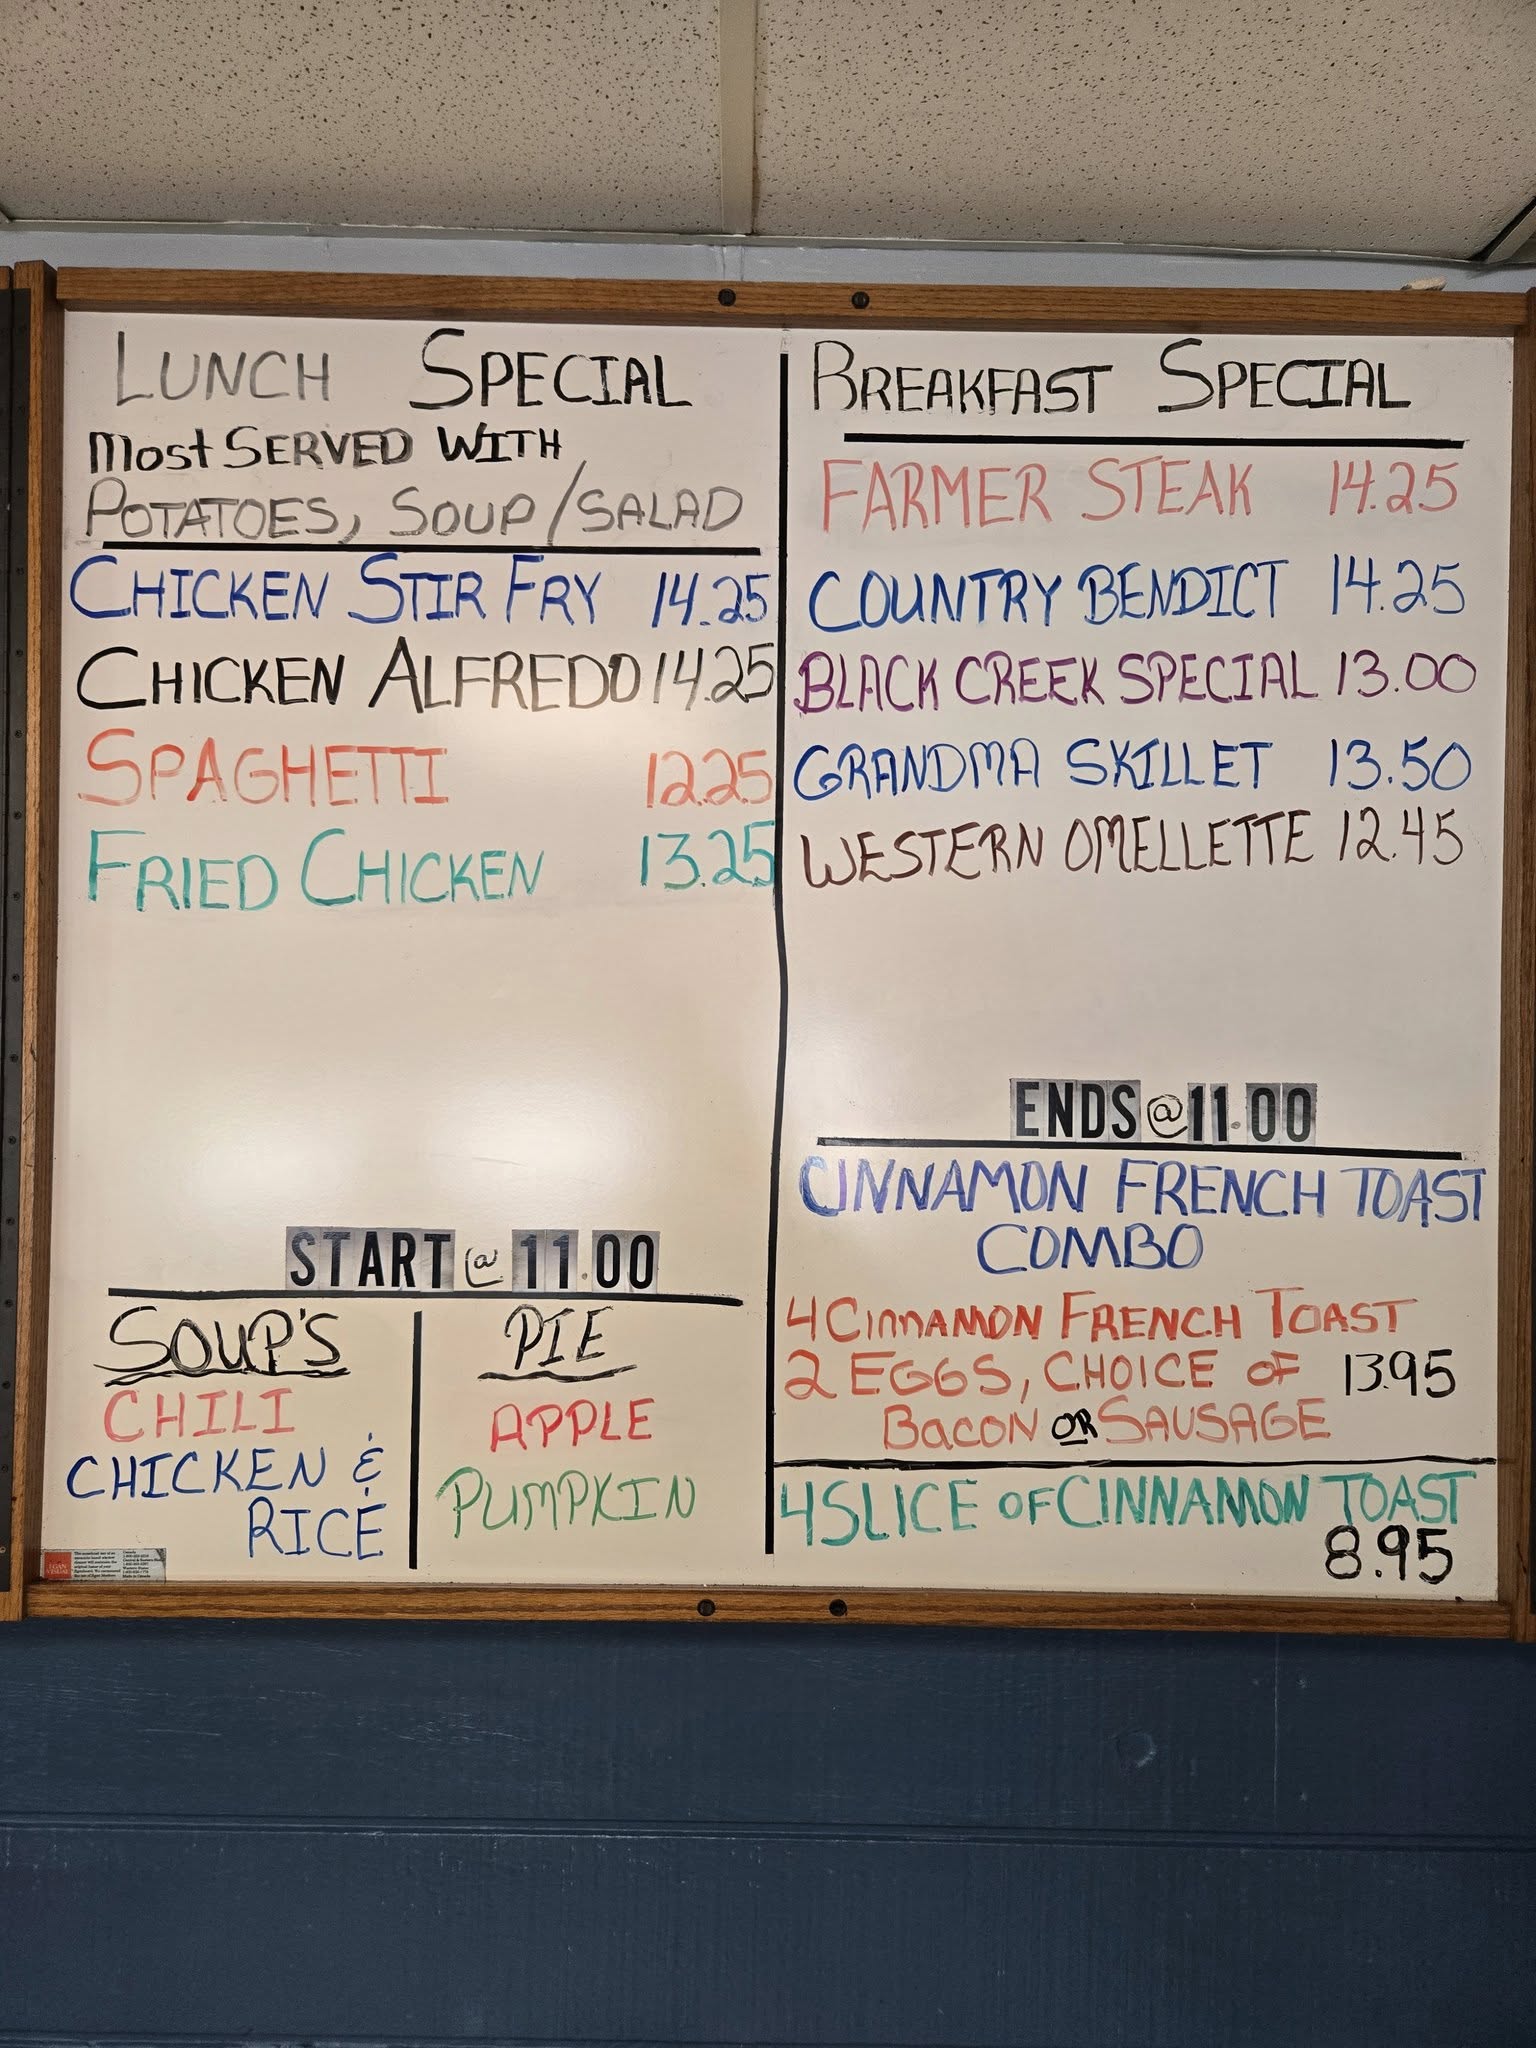 LUNCH SPECIAL
Most SERVED WITH
POTATOES, SOUP/SALAD
CHICKEN STIR FRY 14.25
CHICKEN ALFREDO 14.25
SPAGHETTI 12.25
FRIED CHICKEN 13.25
START @ 11.00
SOUP'S
CHILI
CHICKEN &
RICE
PIE
APPLE
PUMPKIN
BREAKFAST SPECIAL
FARMER STEAK 14.25
COUNTRY BENDICT 14.25
BLACK CREEK SPECIAL 13.00
GRANDMA SKILLET 13.50
WESTERN OMELLETTE 12.45
ENDS @ 11.00
CINNAMON FRENCH TOAST
COMBO
4 CINNAMON FRENCH TOAST
2 EGGS, CHOICE OF 13.95
BACON OR SAUSAGE
4 SLICE OF CINNAMON TOAST
8.95